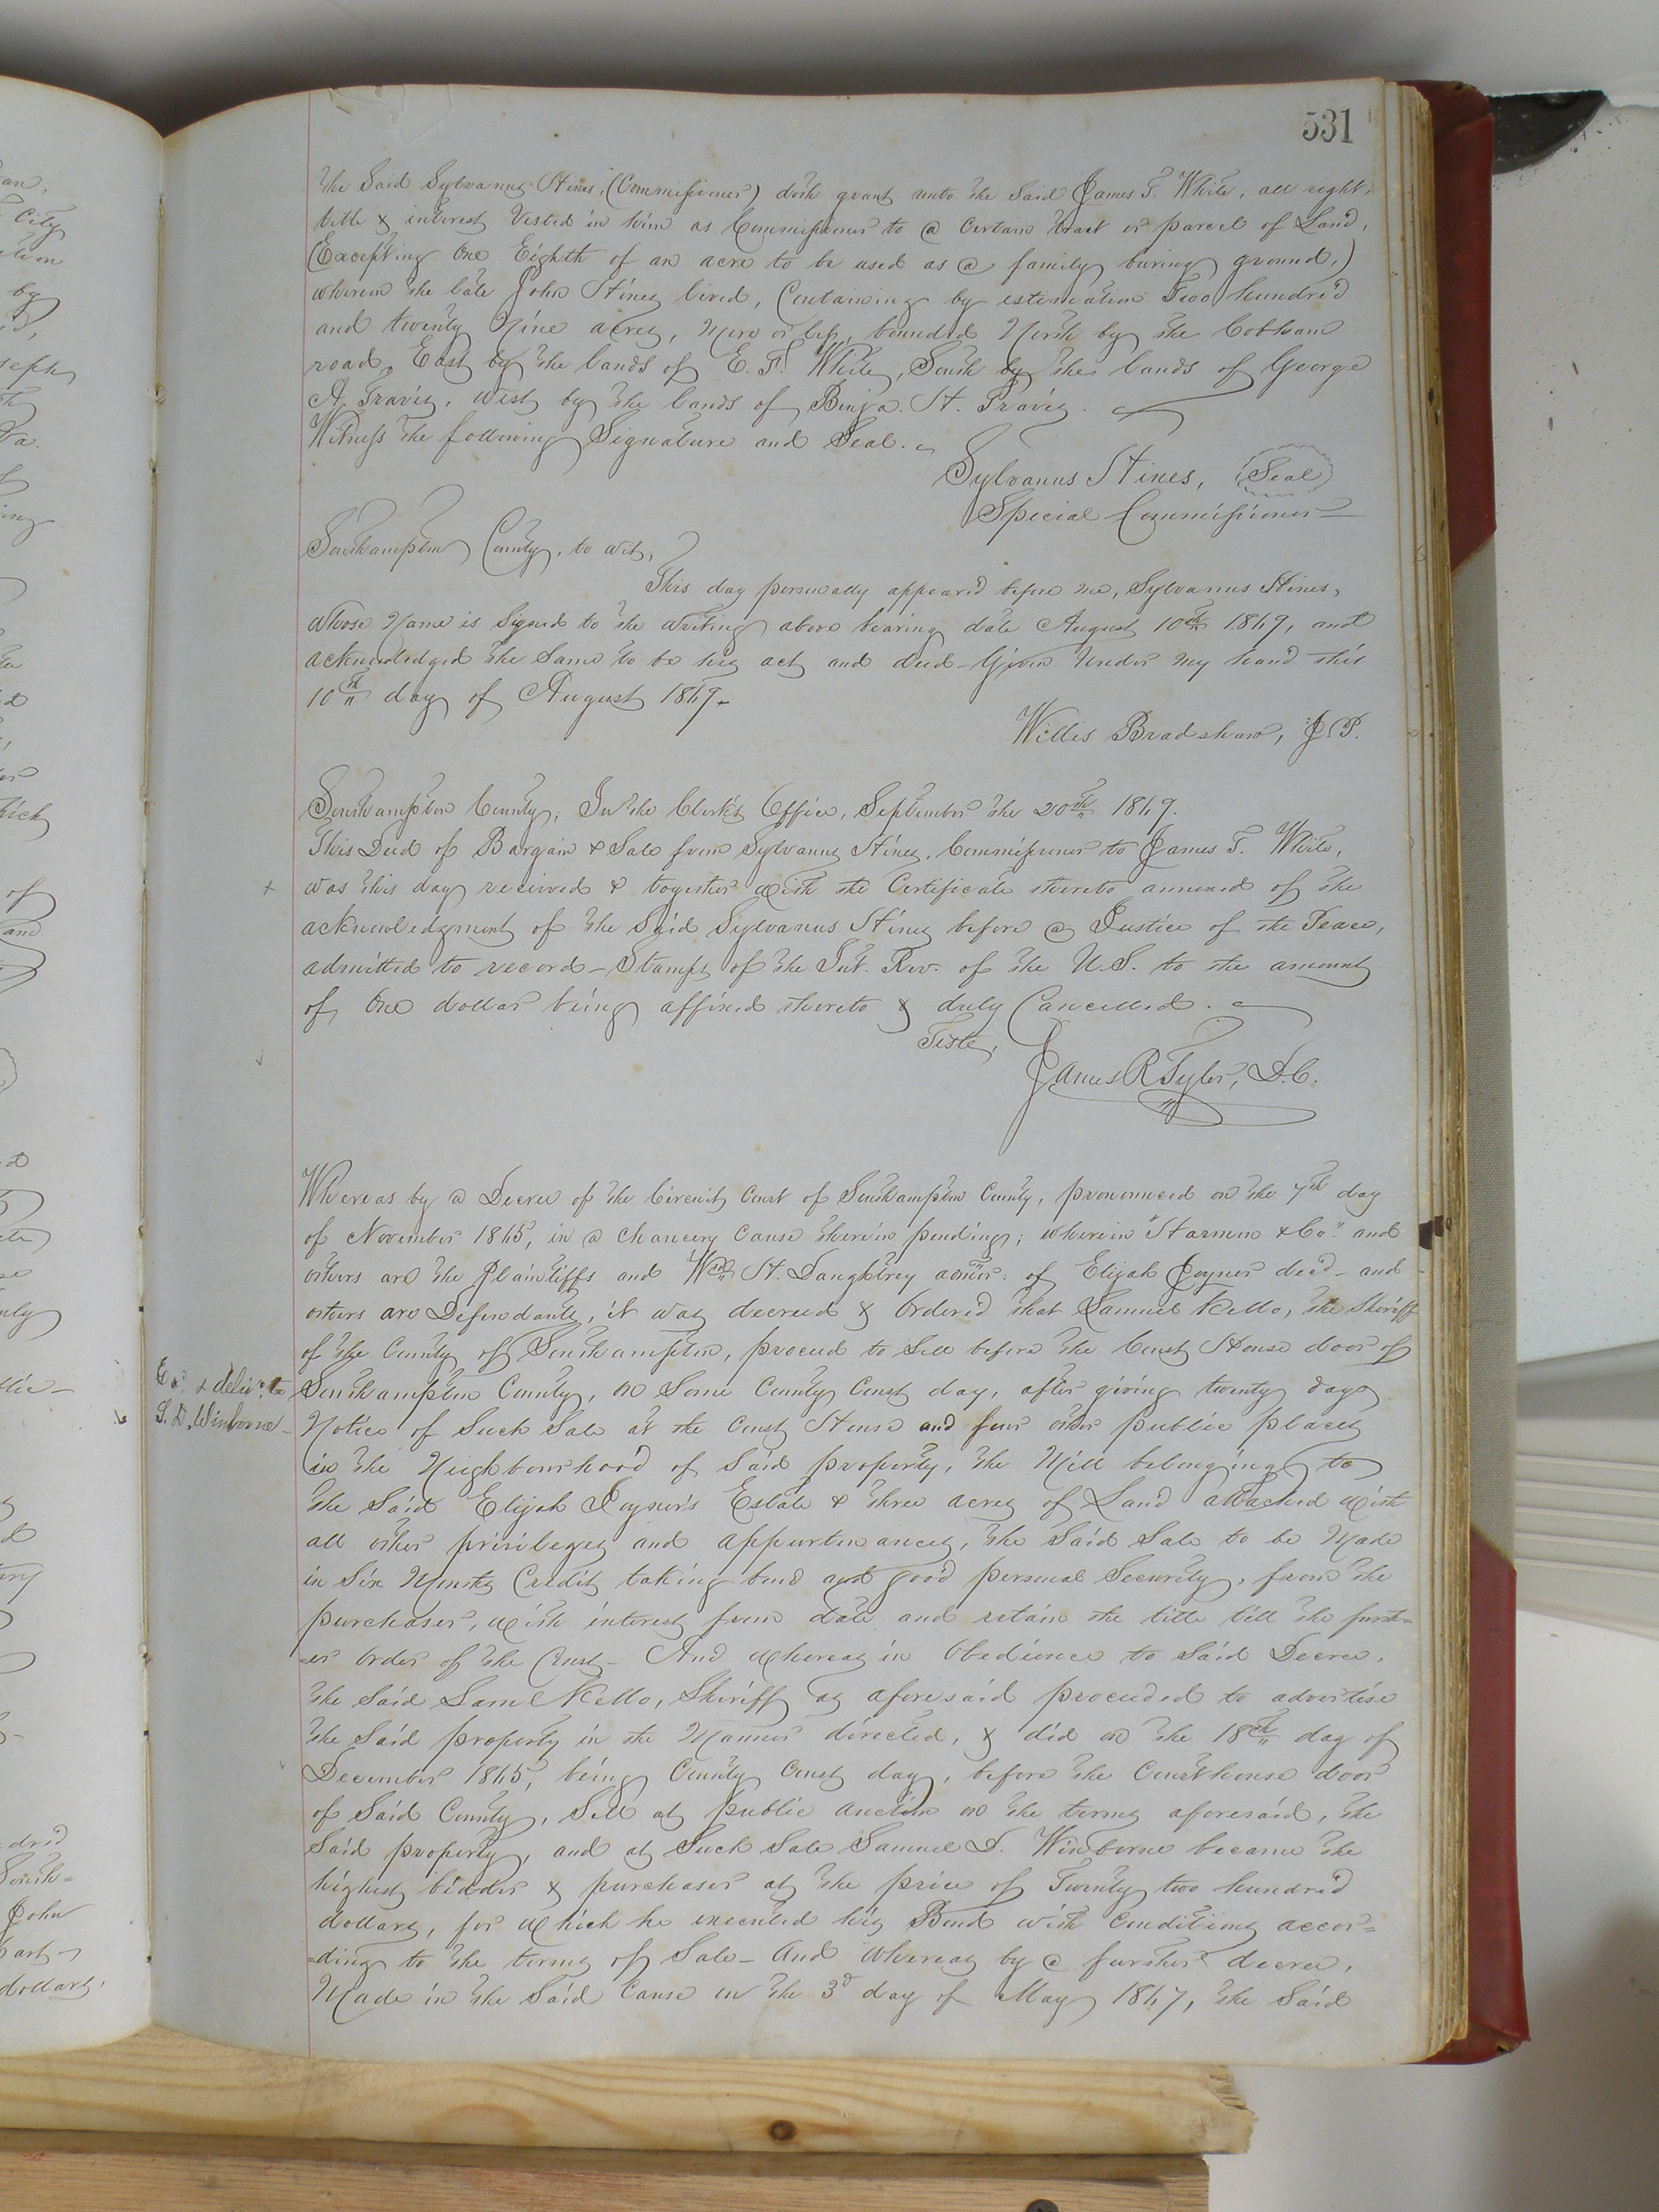 City
by
and
John
dollars,
531
the Said Sylvanus Hines, (Commissioner) doth grant unto the Said James T. White, all right,
title & interest Vested in him as Commissioner to a Certain tract or parcel of Land,
(Excepting One Eighth of an acre to be used as a family buring ground,)
wherein the late John Hines lived, Containing by estimation Two hundred
and twenty Nine acres, More or less, bounded North by the Cobham
road, East by the lands of E. F. White, South by the lands of George
A. Travis, West by the lands of Binja. H. Travis.
Witness the following Signature and Seal.
Sylvanus Hines, (Seal)
Special Commissioner
Southampton County, to wit,
This day personally appeared before me, Sylvanus Hines,
whose Name is Signed to the writing above bearing date August 10th 1869, and
acknowledged the Same to be his act and deed - Given Under my hand this
10th day of August 1869-
Willis Bradshaw, J.P.
Southampton County, In the Clerk's Office, September the 20th 1869.
This Deed of Bargain & Sale from Sylvanus Hines, Commissioner to James T. White,
was this day received & together with the Certificate thereto annexed of the
acknowledgment of the Said Sylvanus Hines before a Justice of the Peace,
admitted to record - Stamps of the Int. Rev. of the U.S. to the amount
of One dollar being affixed thereto & duly Cancelled.
Teste,
James R Tyler, D.C.
Whereas by a Decree of the Circuit Court of Southampton County, pronounced on the 7th day
of November 1865, in a Chancery Cause therein pending; wherein "Harmon & Co." and
others are the Plaintiffs and Wm H. Daughtrey admr: of Elijah Joyner decd- and
others are Defendants, it was decreed & Ordered that Samuel Kello, the Sheriff
of the County of Southampton, proceed to Sell before the Court House door of
Ex. & deliv. to
S. D. Winborne-
Southampton County, on Some County Court day, after giving twenty days
Notice of Such Sale at the Court House and four other public places
in the Neighbourhood of Said property, the Mill belonging to
the Said Elijah Joyner's Estate & three acres of Land attached with
all other privileges and appurtenances, the Said Sale to be Made
in Six Months Credit taking bond and good personal Security, from the
purchaser, with interest from date and retain the title till the furth-
-er Order of the Court- And whereas in Obedience to Said Decree,
the Said Saml Kello, Sheriff as aforesaid proceeded to advertise
the Said property in the Manner directed, & did on the 18th day of
December 1865, being County Court day, before the Courthouse door
of Said County, Sell at public auction on the terms aforesaid, the
Said property, and at Such Sale Samuel D. Winborne became the
highest bidder & purchaser at the price of Twenty two hundred
dollars, for which he executed his Bond with Conditions accor=
=ding to the terms of Sale- And whereas by a further decree,
Made in the Said Cause on the 3d day of May 1867, the Said